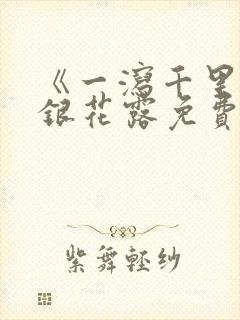 《一瀉千里
銀花露免費
紫舞輕紗